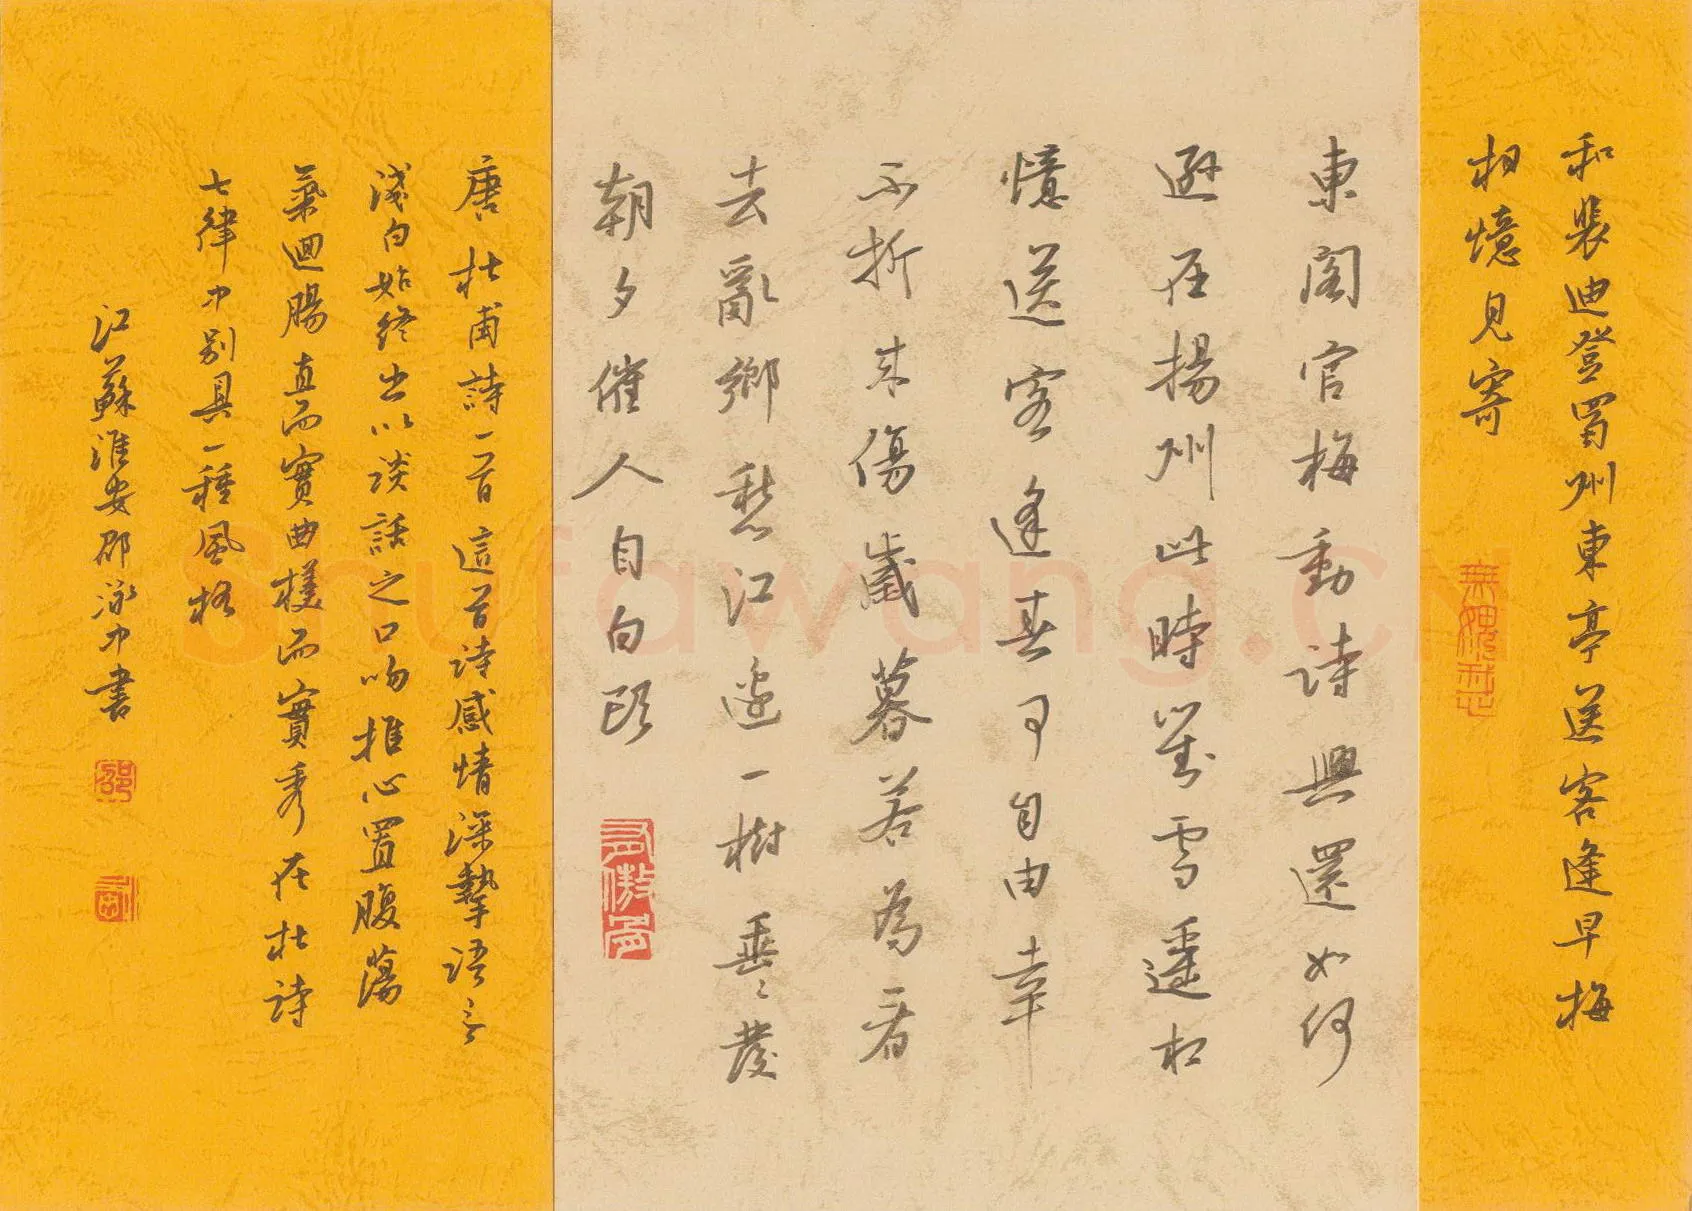 和裴迪登蜀州東亭送客逢早梅
相憶見寄
東閣官梅動詩興還如何
遜在揚州此時對雪遙相
憶送客逢春可自由幸
不折來傷歲暮若為看
去亂鄉愁江邊一樹垂〻發
朝夕催人自白頭
唐杜甫詩一首這首詩感情深摯語言
淺白始終出以談話之口吻推心置腹蕩
氣迴腸直而實曲樸而實秀在杜詩
七律中別具一種風格
江蘇淮安邵泳中書
邵
Shufawang.CN